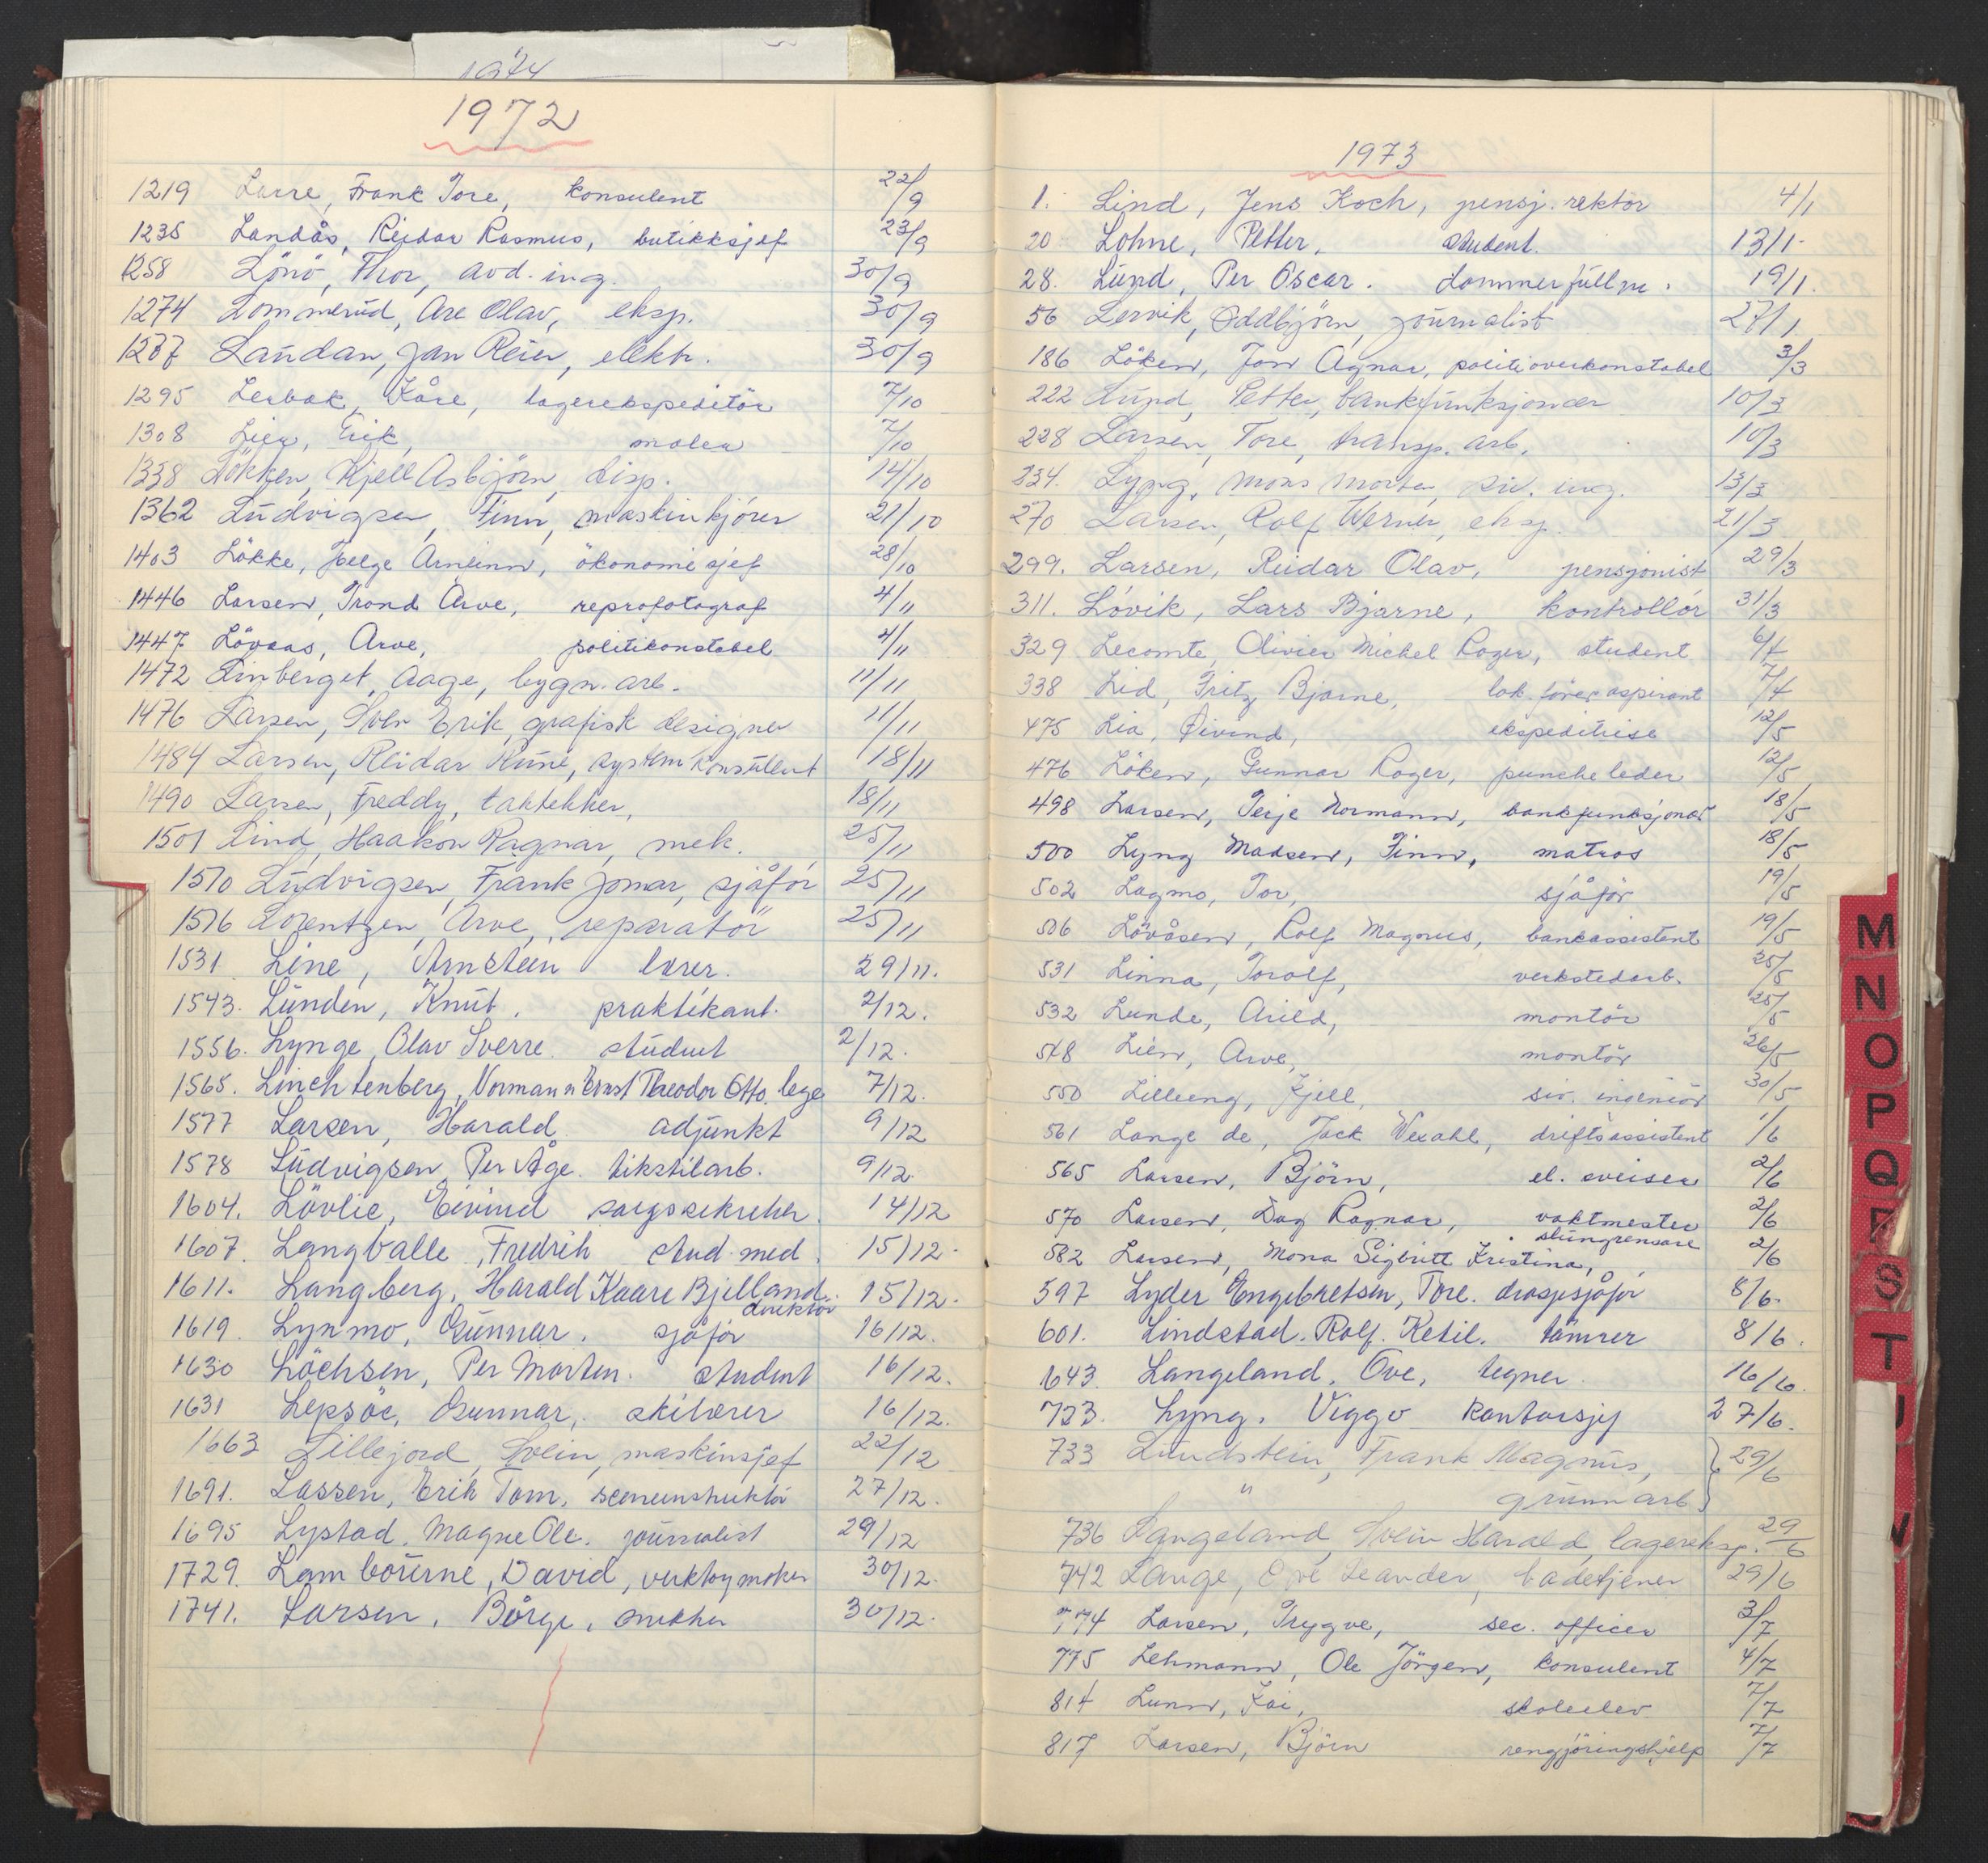 1974
1972
1219 Lerre, Frank Tore, konsulent 22/9
1235 Landås, Reidar Rasmus, butikksjef 23/9
1258 Lönö, Thor, avd. ing. 30/9
1274 Lommerud, Are Olav, eksp. 30/9
1287 Laudan, Jan Reier, elektr. 30/9
1295 Lerbak, Kåre, lagerekspeditör 7/10
1308 Lien, Erik, maler 7/10
1338 Lökken, Kjell Asbjörn, disp. 14/10
1362 Ludvigsen, Finn, maskinkjörer 21/10
1403 Lökke, Helge Arnfinn, ökonomisjef 28/10
1446 Larsen, Trond Arve, reprofotograf 4/11
1447 Lövaas, Arve, politikonstabel 4/11
1472 Linberget, Aage, bygn. arb. 11/11
1476 Larsen, Sven Erik, grafisk designer 11/11
1484 Larsen, Reidar Rune, system konsulent 18/11
1490 Larsen, Freddy, taktekker, 18/11
1501 Lind, Haakon Ragnar, mek. 25/11
1510 Ludvigsen, Frank Jonar, sjåför 25/11
1516 Lorentzen, Arve, reparatör 25/11
1531 Line, Arnstein lærer. 29/11.
1543. Lunden, Knut. praktikant. 2/12.
1556. Lynge, Olav Sverre. student 2/12.
1565. Linchtenberg, Normann Ernst Theodor Otto. lege 7/12.
1577 Larsen, Harald adjunkt 9/12
1578 Ludvigsen, Per Åge. tikstilarb. 9/12.
1604. Lövlie, Eivind salgssekretær. 14/12
1607. Langballe, Fredrik stud. med. 15/12.
1611. Langberg, Harald Kaare Bjelland. 15/12.
direktör
1619. Lynmo, Gunnar. sjåför 16/12.
1630 Löchsen, Per Morten. student 16/12.
1631 Lepsöe, Gunnar,. skilærer 16/12.
1663 Lillejord, Svein, maskinsjef 22/12
1691. Lassen, Erik Tom. sceneinstruktör 27/12.
1695 Lystad. Magne Ole. journalist 29/12
1729. Lambourne, David, verktøymaker 30/12.
1741. Larsen, Börge, snekker 30/12.
1973
1. Lind, Jens Koch, pensj. rektor 4/1
20 Lohne, Petter, student. 13/1.
28. Lund, Per Oscar. dommerfullm. 19/1.
56 Lervik, Oddbjörn, journalist 27/1
186 Löken, Jon Agnar, politioverkonstabel 3/3
222 Lund, Petter, bankfunksjonær 10/3
228 Larsen, Tore, transp. arb. 10/3
234. Lyng, Mons Morten, siv. ing. 13/3
270 Larsen, Rolf Werner, eksp. 21/3
299. Larsen, Reidar Olav, pensjonist 29/3
311. Lövik, Lars Bjarne, kontrollör 31/3
329 Lecomte, Olivier Michel Roger, student 6/4
338 Lid, Fritz Bjarne, lok. föreraspirant 7/4
475 Lia, Øivind, ekspeditrise 12/5
476 Löken, Gunnar Roger, puncheleder 12/5
498 Larsen, Terje Normann, bankfunksjonær 18/5
500 Lyng Madsen, Finn, matros 18/5
502 Lagmo, Tor, sjåför 19/5
506 Lövåsen, Rolf Magnus, bankassistent 19/5
531 Linna, Torolf, verkstedarb. 25/5
532 Lunde, Arild, montör 25/5
548 Lien, Arve, montör 26/5
550 Lilleeng, Kjell, siv. ingeniör 30/5
561 Lange de, Jack Wexahl, driftsassistent 1/6
565 Larsen, Björn, el. sveiser 2/6
570 Larsen, Dag Ragnar, vaktmester 2/6
582 Larsen, Mona Sigbritt Kristina, slungrensare 2/6
597 Lyder Engebretsen, Tore. drosjesjåför 8/6.
601. Lindstad. Rolf. Ketil. tømrer 8/6.
643. Langeland, Ove, tegner. 16/6.
723. Lyng, Viggo kontorsjef 27/6.
733 Lundstein, Frank Magnus, } 29/6
" grunnarb.
736 Langeland, Svein Harald, lagereksp. 29/6
742 Lange, Ove Leander, badetjener 29/6
774 Larsen, Trygve, sec. officer 3/7
775 Lehmann, Ole Jörgen, konsulent 4/7
814 Lunn, Kai, skoleelev 7/7
817 Larsen, Björn rengjöringshjelp 7/7
M
N
O
P
Q
R
S
T
U
V